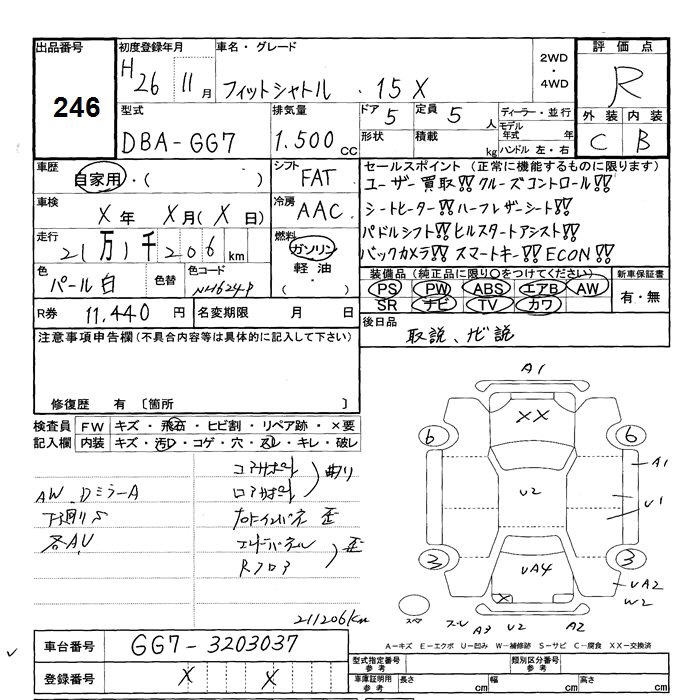 出品番号
246
初度登録年月
H26 11月
車名・グレード
フィットシャトル . 15X
2WD
・
4WD
評価点
R
外装 内装
C B
型式
DBA-GG7
排気量
1.500 CC
ドア 5
形状
定員 5 人
積載 kg
ディーラー・並行
モデル年式 年
ハンドル 左・右
車歴
自家用・( )
シフト
FAT
車検
X年 X月(X日)
冷房
AAC
走行
21万1千206km
燃料
ガソリン
軽油・
( )
色
パール白
色替
色コード
NH624P
R券 11.440円
名変期限 月 日
セールスポイント (正常に機能するものに限ります)
ユーザー買取!! クルーズコントロール!!
シートヒーター!! ハーフレザーシート!!
パドルシフト!! ヒルスタートアシスト!!
バックカメラ!! スマートキー!! ECON!!
装備品 (純正品に限り○をつけてください)
PS PW ABS エアB AW
SR ナビ TV カワ
新車保証書
有・無
後日品
取説、ナビ説
注意事項申告欄(不具合内容等は具体的に記入して下さい)
修復歴 有 〔箇所 〕
検査員記入欄
FW キズ・飛石・ヒビ割・リペア跡・×要
内装 キズ・汚レ・コゲ・穴・スレ・キレ・破レ
コアサポート
ロアサポート
曲り
AW、DミラーA
下廻りS
各A,U
歪
エンドパネル
Rフロア
歪
211206Km
A1
XX
6
6
A1
U2
U1
3
3
UA4
X
UA2
W2
スペア
A3
U2
A2
A=キズ E=エクボ U=凹み W=補修跡 S=サビ C=腐食 XX=交換済
車台番号
GG7-3203037
登録番号
X X
型式指定番号
参考
類別区分番号
参考
車庫証明用
参考
長さ cm
幅 cm
高さ cm